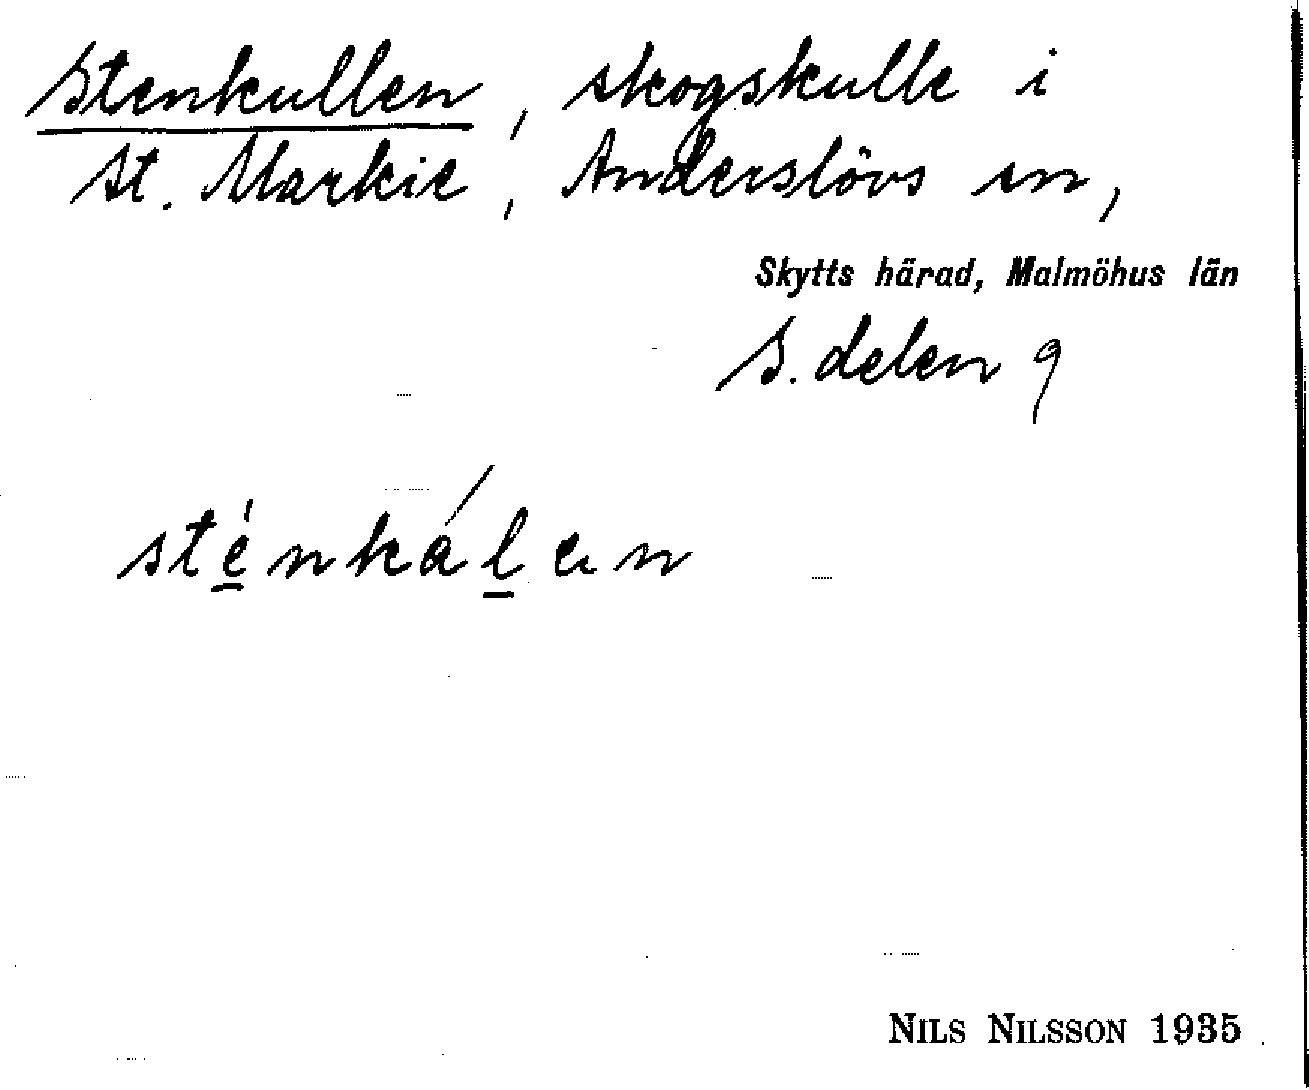 Stenkullen, skogskulle i
St. Markie, Anderslövs sn,
Skytts härad, Malmöhus län
S. delen 9
sténkálen
NILS NILSSON 1935